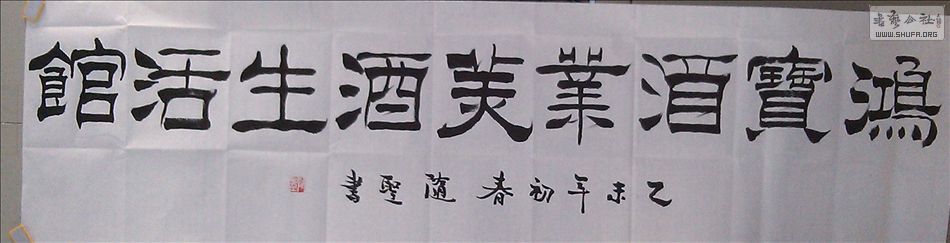 鴻寶酒業美酒生活館
乙未年初春隨聖書
書藝公社
WWW.SHUFA.ORG